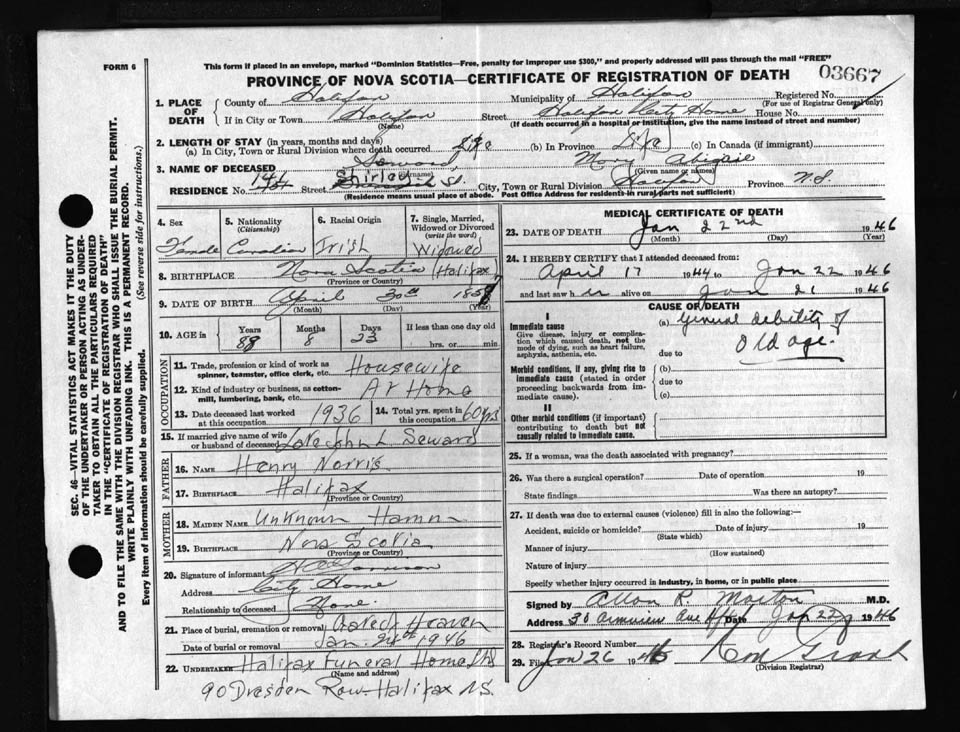 FORM 6
This form if placed in an envelope, marked "Dominion Statistics—Free, penalty for improper use $300," and properly addressed will pass through the mail "FREE"
PROVINCE OF NOVA SCOTIA—CERTIFICATE OF REGISTRATION OF DEATH
03667
1. PLACE OF DEATH
County of Halifax Municipality of Halifax Registered No.
(For use of Registrar General only)
If in City or Town Halifax Street Halifax City Home House No.
(Name) (If death occurred in a hospital or institution, give the name instead of street and number)
2. LENGTH OF STAY (in years, months and days)
(a) In City, Town or Rural Division where death occurred Life (b) In Province Life (c) In Canada (if immigrant)
3. NAME OF DECEASED Seward Mary Abigail
(Surname) (Given name or names)
RESIDENCE No. Street Shirley St. City, Town or Rural Division Halifax Province N.S.
(Residence means usual place of abode. Post Office Address for residents in rural parts not sufficient)
4. Sex
Female
5. Nationality (Citizenship)
Canadian
6. Racial Origin
Irish
7. Single, Married, Widowed or Divorced (write the word)
Widowed
8. BIRTHPLACE Nova Scotia (Halifax)
(Province or Country)
9. DATE OF BIRTH April 30th
(Month) (Day) (Year)
10. AGE in Years Months Days If less than one day
8 23 hrs. or min.
OCCUPATION
11. Trade, profession or kind of work as spinner, teamster, office clerk, etc. Housewife
12. Kind of industry or business, as cotton-mill, lumbering, bank, etc. At Home
13. Date deceased last worked at this occupation 1936
14. Total yrs. spent in this occupation 60 yrs
15. If married give name of wife or husband of deceased Late John L Seward
FATHER
16. NAME Henry Norris
17. BIRTHPLACE Halifax
(Province or Country)
MOTHER
18. MAIDEN NAME Unknown
19. BIRTHPLACE Nova Scotia
(Province or Country)
20. Signature of informant
Address City Home
Relationship to deceased None.
21. Place of burial, cremation or removal
Date of burial or removal Jan. 24th 1946
22. UNDERTAKER Halifax Funeral Home Ltd
(Name and address)
90 Dresden Row Halifax N.S.
MEDICAL CERTIFICATE OF DEATH
23. DATE OF DEATH Jan 22nd 1946
(Month) (Day) (Year)
24. I HEREBY CERTIFY that I attended deceased from:
April 17 1944 to Jan 22 1946
and last saw her alive on Jan 21 1946
CAUSE OF DEATH
I
Immediate cause
Give disease, injury or complication which caused death, not the mode of dying, such as heart failure, asphyxia, asthenia, etc.
(a) General debility of
old age.
due to
Morbid conditions, if any, giving rise to immediate cause (stated in order proceeding backwards from immediate cause).
(b)
due to
(c)
II
Other morbid conditions (if important) contributing to death but not causally related to immediate cause.
25. If a woman, was the death associated with pregnancy?
26. Was there a surgical operation? Date of operation 19
State findings Was there an autopsy?
27. If death was due to external causes (violence) fill in also the following:—
Accident, suicide or homicide? Date of injury 19
(State which)
Manner of injury
(How sustained)
Nature of injury
Specify whether injury occurred in industry, in home, or in public place
Signed by Allan R. Morton M.D.
Address 30 Date Jan 22 1946
28. Registrar's Record Number
29. Filed Jan 26 1946
(Division Registrar)
SEC. 46—VITAL STATISTICS ACT MAKES IT THE DUTY
OF THE UNDERTAKER OR PERSON ACTING AS UNDER-
TAKER TO OBTAIN ALL THE PARTICULARS REQUIRED
IN THE "CERTIFICATE OF REGISTRATION OF DEATH"
AND TO FILE THE SAME WITH THE DIVISION REGISTRAR WHO SHALL ISSUE THE BURIAL PERMIT.
WRITE PLAINLY WITH UNFADING INK. THIS IS A PERMANENT RECORD.
Every item of information should be carefully supplied. (See reverse side for instructions.)